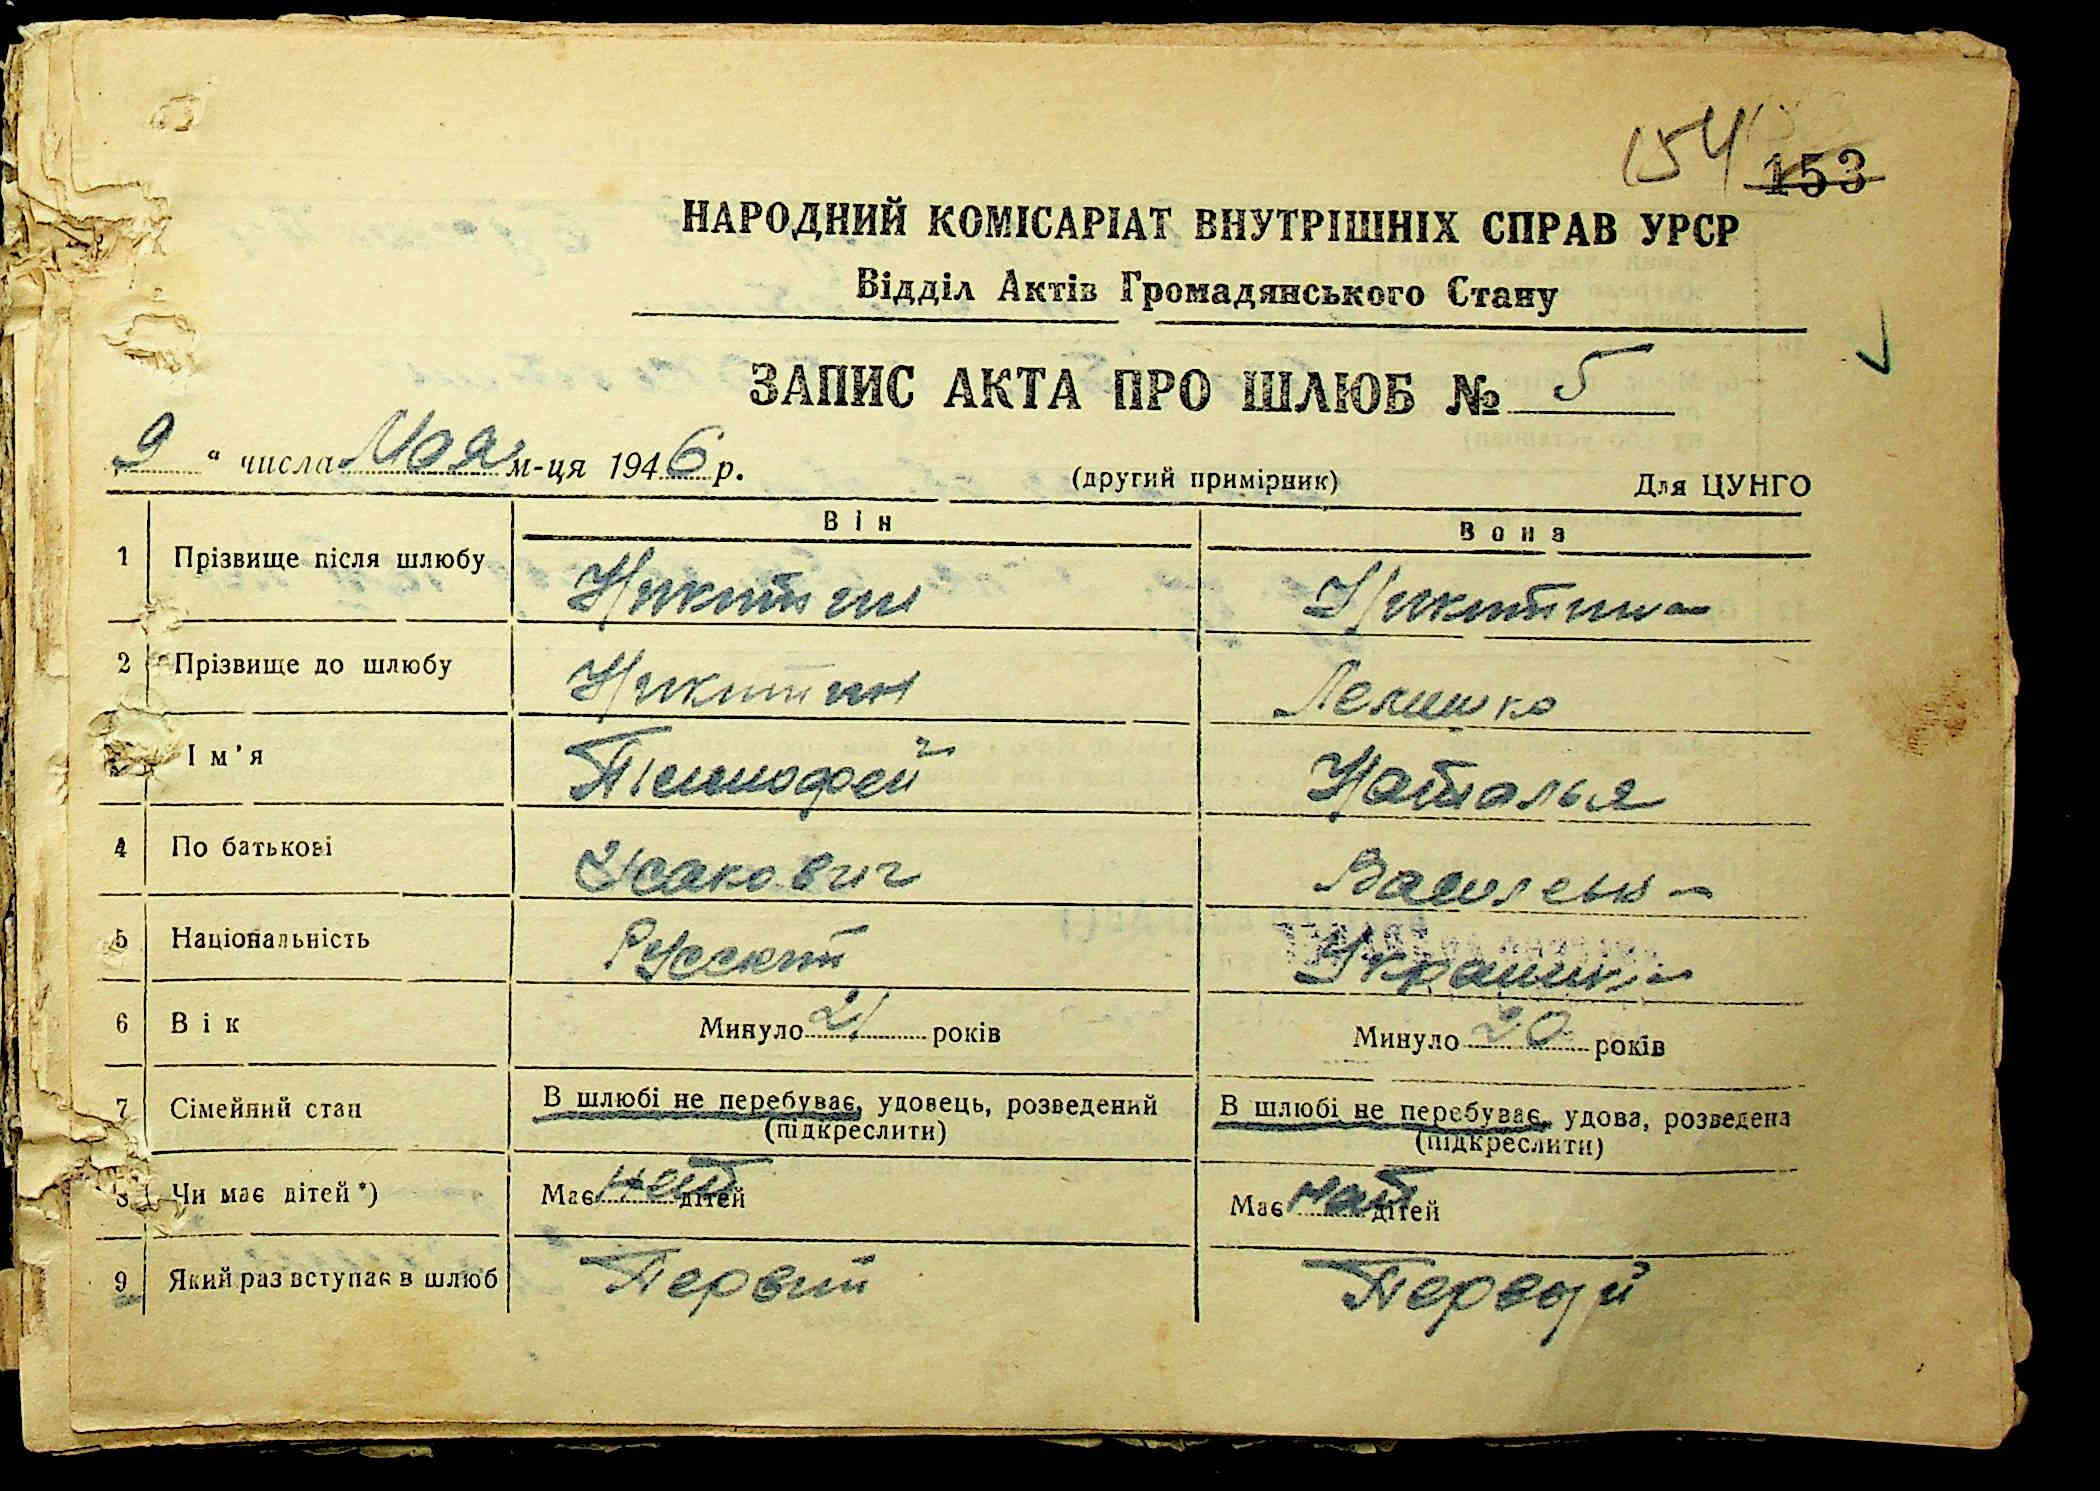 154
153
НАРОДНИЙ КОМІСАРІАТ ВНУТРІШНІХ СПРАВ УРСР
Відділ Актів Громадянського Стану
ЗАПИС АКТА ПРО ШЛЮБ № 5
9 " числа Мая м-ця 1946 р.
(другий примірник)
Для ЦУНГО
Він
Вона
1 Прізвище після шлюбу Никитин Никитина
2 Прізвище до шлюбу Никитин
Ім'я Тимофей Наталья
4 По батькові Исакович
5 Національність Русский
6 Вік Минуло 21 років Минуло 20 років
7 Сімейний стан В шлюбі не перебуває, удовець, розведений В шлюбі не перебуває, удова, розведена
(підкреслити) (підкреслити)
8 Чи має дітей *) Має нет дітей Має нет дітей
9 Який раз вступає в шлюб Первий Первый